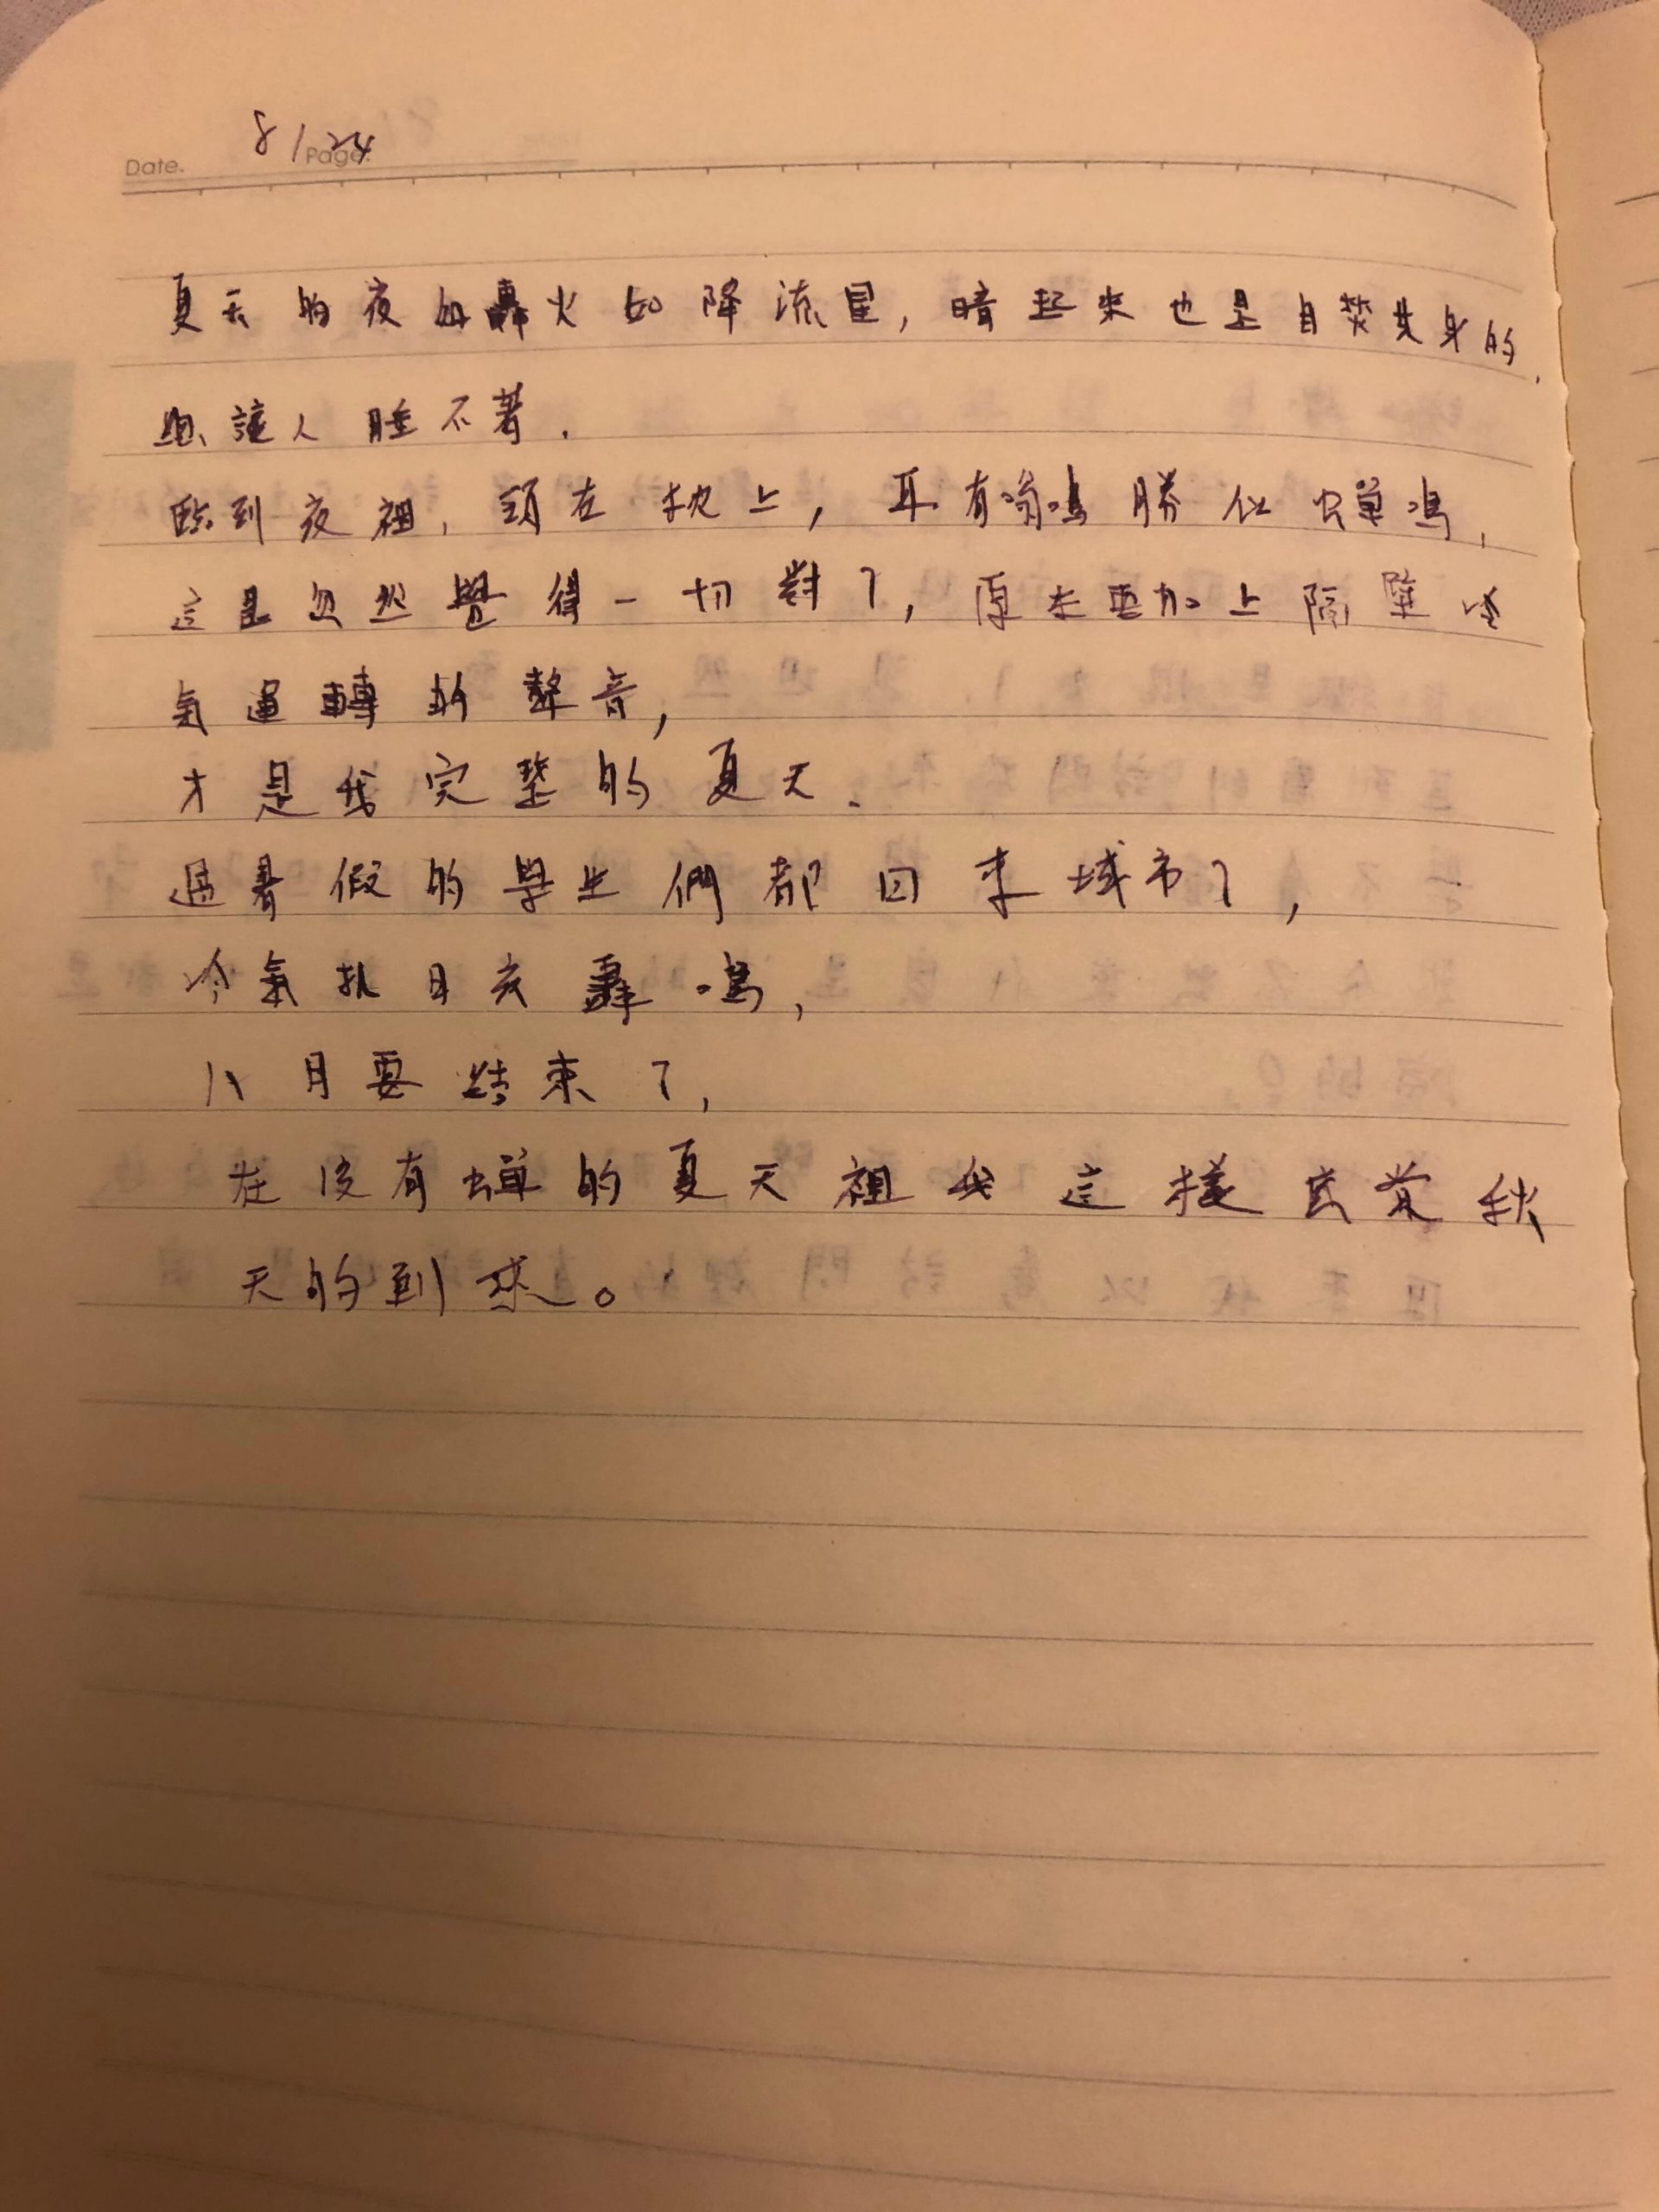 Date. 8/24 Page.
夏天的夜的轟火如降流星，暗起來也是自焚其身的，
總讓人睡不著．
臨到夜裡，頭在枕上，耳有嗡鳴勝似蟬鳴，
這是忽然覺得一切對了，原來要加上隔壁冷
氣運轉的聲音，
才是我完整的夏天．
過暑假的學生們都回來城市了，
冷氣扎日夜轟鳴，
八月要結束了，
在沒有蟬的夏天裡我這樣感覺秋
天的到來。